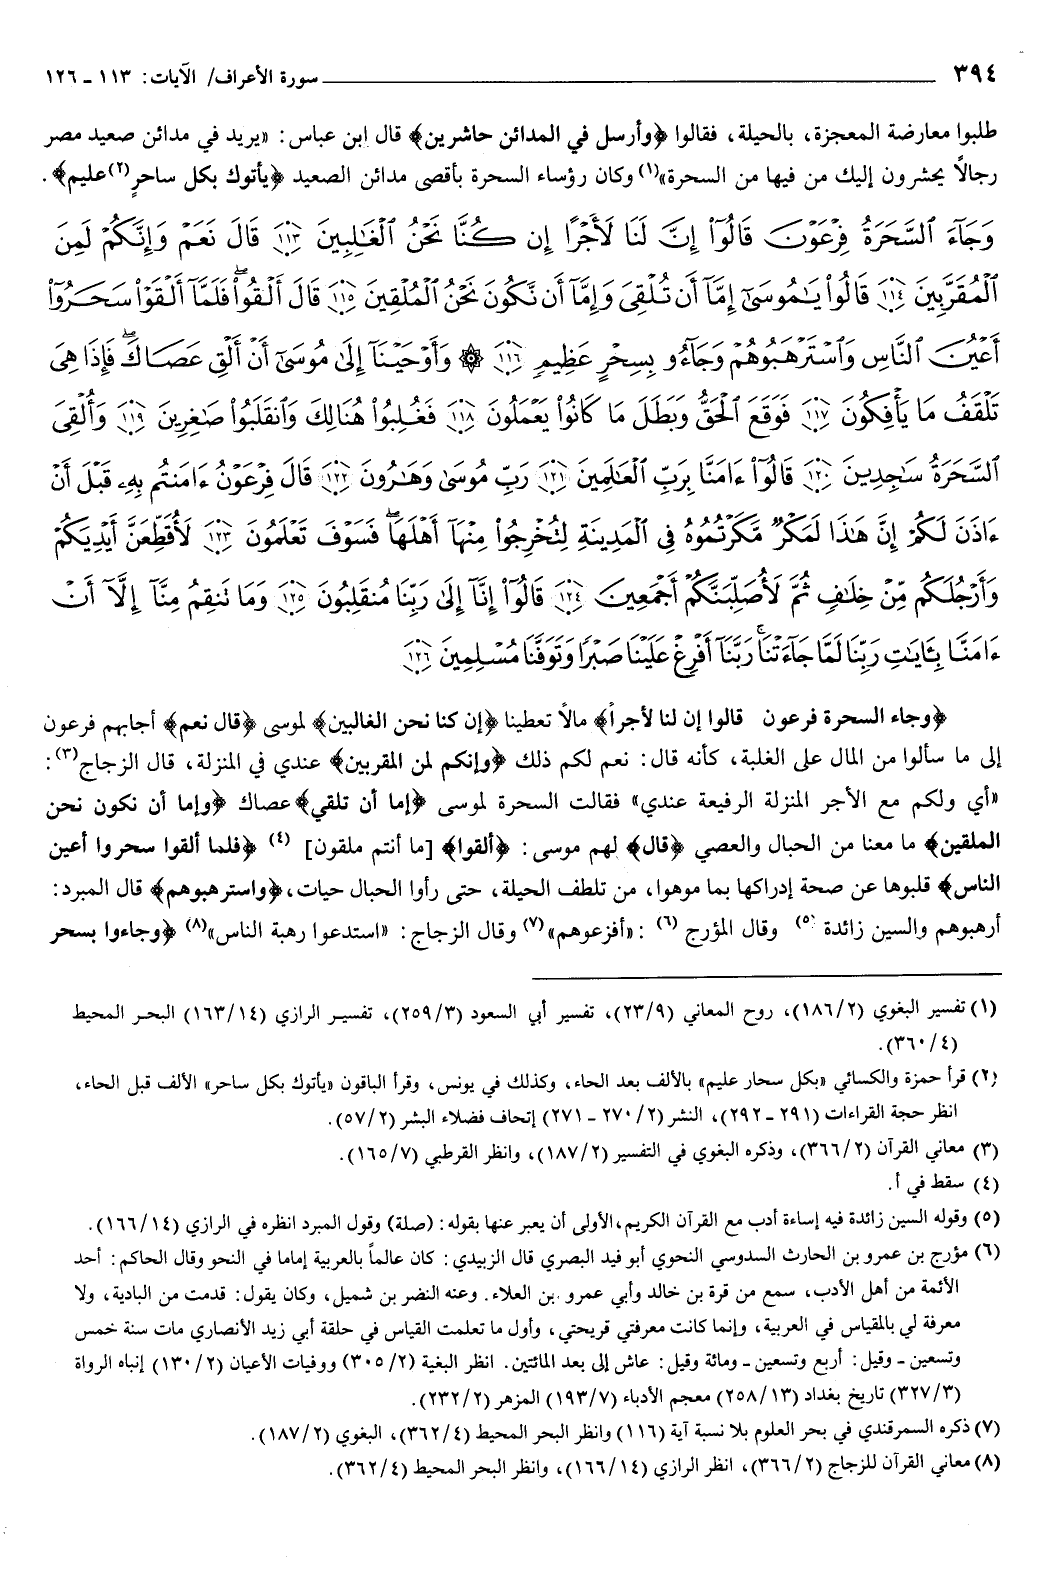 ٣٩٤ سورة الأعراف/ الآيات: ١١٣ ـ ١٢٦
طلبوا معارضة المعجزة، بالحيلة، فقالوا ﴿وأرسل في المدائن حاشرين﴾ قال ابن عباس: «يريد في مدائن صعيد مصر
رجالاً يحشرون إليك من فيها من السحرة»(١) وكان رؤساء السحرة بأقصى مدائن الصعيد ﴿يأتوك بكل ساحرٍ(٢) عليم﴾.
وَجَآءَ ٱلسَّحَرَةُ فِرْعَوْنَ قَالُوٓا۟ إِنَّ لَنَا لَأَجْرًا إِن كُنَّا نَحْنُ ٱلْغَـٰلِبِينَ ١١٣ قَالَ نَعَمْ وَإِنَّكُمْ لَمِنَ
ٱلْمُقَرَّبِينَ ١١٤ قَالُوا۟ يَـٰمُوسَىٰٓ إِمَّآ أَن تُلْقِىَ وَإِمَّآ أَن نَّكُونَ نَحْنُ ٱلْمُلْقِينَ ١١٥ قَالَ أَلْقُوا۟ ۖ فَلَمَّآ أَلْقَوْا۟ سَحَرُوٓا۟
أَعْيُنَ ٱلنَّاسِ وَٱسْتَرْهَبُوهُمْ وَجَآءُو بِسِحْرٍ عَظِيمٍ ١١٦ ۞ وَأَوْحَيْنَآ إِلَىٰ مُوسَىٰٓ أَنْ أَلْقِ عَصَاكَ ۖ فَإِذَا هِىَ
تَلْقَفُ مَا يَأْفِكُونَ ١١٧ فَوَقَعَ ٱلْحَقُّ وَبَطَلَ مَا كَانُوا۟ يَعْمَلُونَ ١١٨ فَغُلِبُوا۟ هُنَالِكَ وَٱنقَلَبُوا۟ صَـٰغِرِينَ ١١٩ وَأُلْقِىَ
ٱلسَّحَرَةُ سَـٰجِدِينَ ١٢٠ قَالُوٓا۟ ءَامَنَّا بِرَبِّ ٱلْعَـٰلَمِينَ ١٢١ رَبِّ مُوسَىٰ وَهَـٰرُونَ ١٢٢ قَالَ فِرْعَوْنُ ءَامَنتُم بِهِۦ قَبْلَ أَنْ
ءَاذَنَ لَكُمْ ۖ إِنَّ هَـٰذَا لَمَكْرٌ مَّكَرْتُمُوهُ فِى ٱلْمَدِينَةِ لِتُخْرِجُوا۟ مِنْهَآ أَهْلَهَا ۖ فَسَوْفَ تَعْلَمُونَ ١٢٣ لَأُقَطِّعَنَّ أَيْدِيَكُمْ
وَأَرْجُلَكُم مِّنْ خِلَـٰفٍ ثُمَّ لَأُصَلِّبَنَّكُمْ أَجْمَعِينَ ١٢٤ قَالُوٓا۟ إِنَّآ إِلَىٰ رَبِّنَا مُنقَلِبُونَ ١٢٥ وَمَا تَنقِمُ مِنَّآ إِلَّآ أَنْ
ءَامَنَّا بِـَٔايَـٰتِ رَبِّنَا لَمَّا جَآءَتْنَا ۚ رَبَّنَآ أَفْرِغْ عَلَيْنَا صَبْرًا وَتَوَفَّنَا مُسْلِمِينَ ١٢٦
﴿وجاء السحرة فرعون قالوا إن لنا لأجراً﴾ مالاً تعطينا ﴿إن كنا نحن الغالبين﴾ لموسى ﴿قال نعم﴾ أجابهم فرعون
إلى ما سألوا من المال على الغلبة، كأنه قال: نعم لكم ذلك ﴿وإنكم لمن المقربين﴾ عندي في المنزلة، قال الزجاج(٣):
«أي ولكم مع الأجر المنزلة الرفيعة عندي» فقالت السحرة لموسى ﴿إما أن تلقي﴾ عصاك ﴿وإما أن نكون نحن
الملقين﴾ ما معنا من الحبال والعصي ﴿قال﴾ لهم موسى: ﴿ألقوا﴾ [ما أنتم ملقون] (٤) ﴿فلما ألقوا سحروا أعين
الناس﴾ قلبوها عن صحة إدراكها بما موهوا، من تلطف الحيلة، حتى رأوا الحبال حيات، ﴿واسترهبوهم﴾ قال المبرد:
أرهبوهم والسين زائدة (٥) وقال المؤرج (٦): «أفزعوهم»(٧) وقال الزجاج: «استدعوا رهبة الناس»(٨) ﴿وجاءوا بسحر
(١) تفسير البغوي (١٨٦/٢)، روح المعاني (٢٣/٩)، تفسير أبي السعود (٢٥٩/٣)، تفسير الرازي (١٦٣/١٤) البحر المحيط
(٣٦٠/٤).
(٢) قرأ حمزة والكسائي «بكل سحار عليم» بالألف بعد الحاء، وكذلك في يونس، وقرأ الباقون «يأتوك بكل ساحر» الألف قبل الحاء،
انظر حجة القراءات (٢٩١ ـ ٢٩٢)، النشر (٢٧٠/٢ ـ ٢٧١) إتحاف فضلاء البشر (٥٧/٢).
(٣) معاني القرآن (٣٦٦/٢)، وذكره البغوي في التفسير (١٨٧/٢)، وانظر القرطبي (١٦٥/٧).
(٤) سقط في أ.
(٥) وقوله السين زائدة فيه إساءة أدب مع القرآن الكريم، الأولى أن يعبر عنها بقوله: (صلة) وقول المبرد انظره في الرازي (١٦٦/١٤).
(٦) مؤرج بن عمرو بن الحارث السدوسي النحوي أبو فيد البصري قال الزبيدي: كان عالماً بالعربية إماما في النحو وقال الحاكم: أحد
الأئمة من أهل الأدب، سمع من قرة بن خالد وأبي عمرو بن العلاء. وعنه النضر بن شميل، وكان يقول: قدمت من البادية، ولا
معرفة لي بالمقياس في العربية، وإنما كانت معرفتي قريحتي، وأول ما تعلمت القياس في حلقة أبي زيد الأنصاري مات سنة خمس
وتسعين ـ وقيل: أربع وتسعين ـ ومائة وقيل: عاش إلى بعد المائتين. انظر البغية (٣٠٥/٢) ووفيات الأعيان (١٣٠/٢) إنباه الرواة
(٣٢٧/٣) تاريخ بغداد (٢٥٨/١٣) معجم الأدباء (١٩٣/٧) المزهر (٢٣٢/٢).
(٧) ذكره السمرقندي في بحر العلوم بلا نسبة آية (١١٦) وانظر البحر المحيط (٣٦٢/٤)، البغوي (١٨٧/٢).
(٨) معاني القرآن للزجاج (٣٦٦/٢)، انظر الرازي (١٦٦/١٤)، وانظر البحر المحيط (٣٦٢/٤).